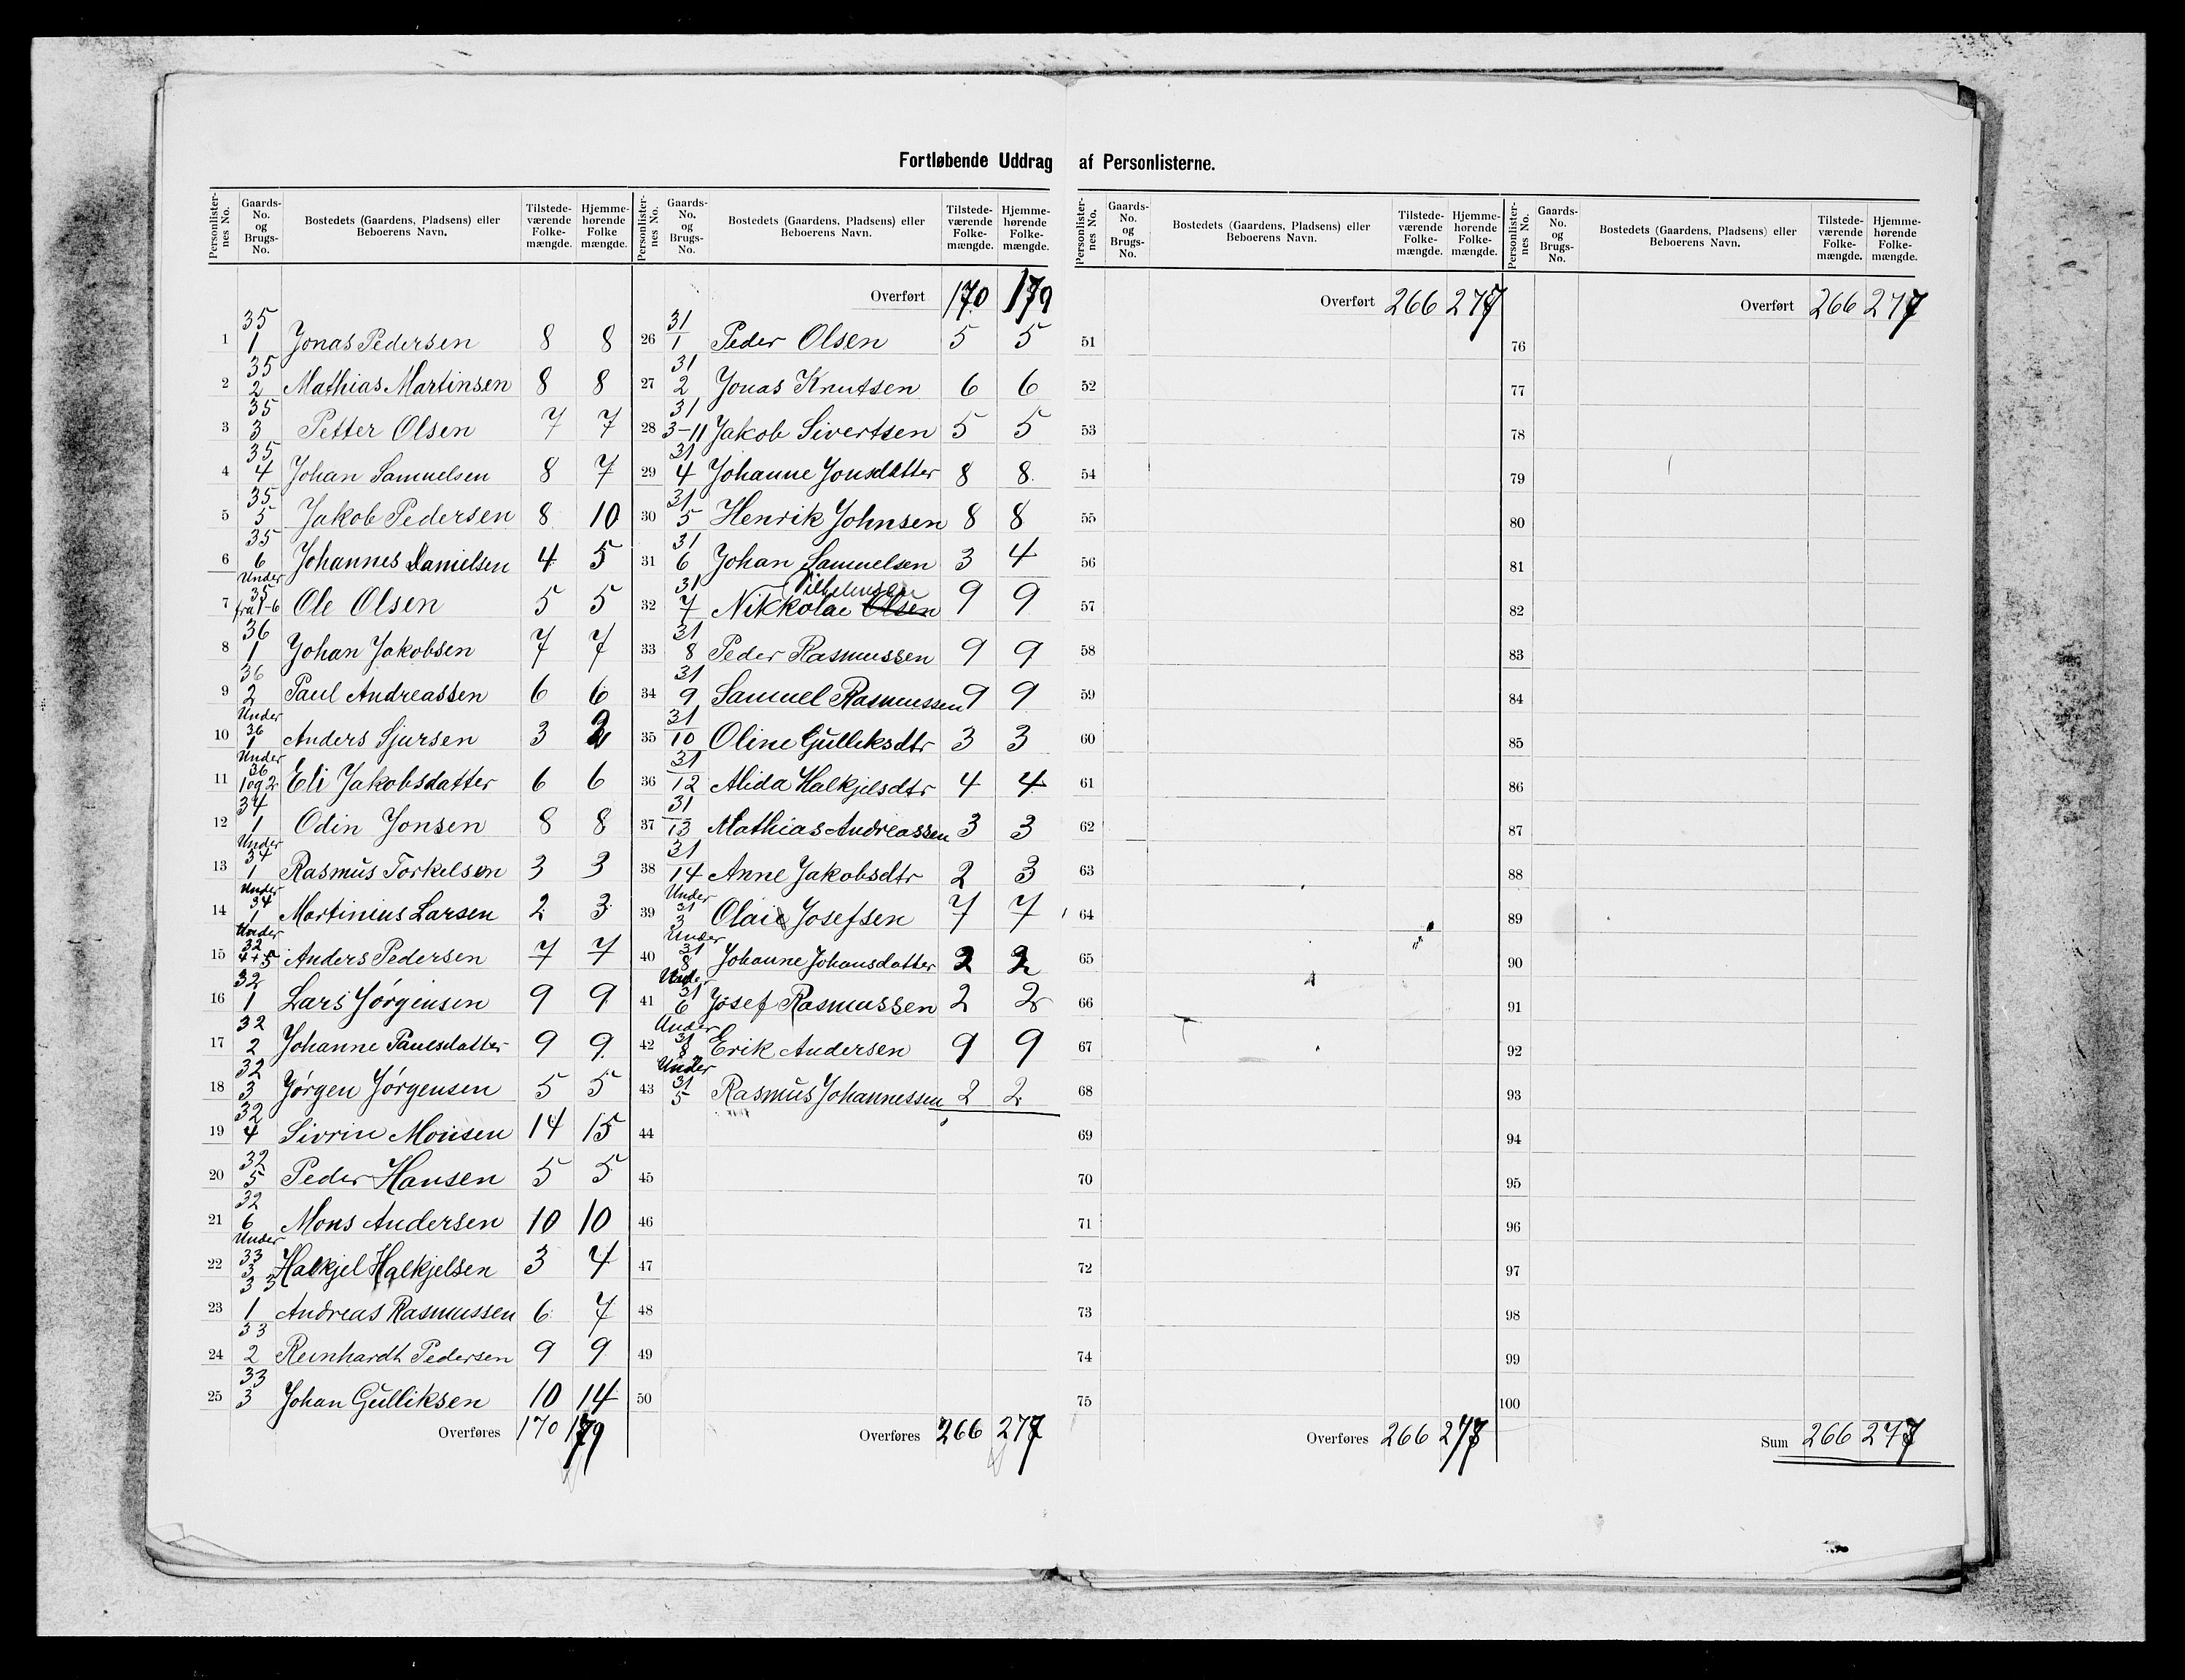 Fortløbende Uddrag af Personlisterne.
Personlister-nes No. | Gaards-No. og Brugs-No. | Bostedets (Gaardens, Pladsens) eller Beboerens Navn. | Tilstede-værende Folke-mængde. | Hjemme-hørende Folke mængde.
1 | 35/1 | Jonas Pedersen | 8 | 8
2 | 35/2 | Mathias Martinsen | 8 | 8
3 | 35/3 | Petter Olsen | 7 | 7
4 | 35/4 | Johan Samuelsen | 8 | 7
5 | 35/5 | Jakob Pedersen | 8 | 10
6 | 35/6 | Johannes Danielsen | 4 | 5
7 | Under 35/fra 1-6 | Ole Olsen | 5 | 5
8 | 36/1 | Johan Jakobsen | 7 | 7
9 | 36/2 | Paul Andreassen | 6 | 6
10 | Under 36/1 | Anders Sjursen | 3 | 2
11 | Under 36/1 og 2 | Eli Jakobsdatter | 6 | 6
12 | 34/1 | Odin Jonsen | 8 | 8
13 | Under 34/1 | Rasmus Torkelsen | 3 | 3
14 | Under 34/1 | Martinius Larsen | 2 | 3
15 | Under 32/4+5 | Anders Pedersen | 7 | 7
16 | 32/1 | Lars Jørgensen | 9 | 9
17 | 32/2 | Johanne Paulsdatter | 9 | 9
18 | 32/3 | Jørgen Jørgensen | 5 | 5
19 | 32/4 | Sivrin Monsen | 14 | 15
20 | 32/5 | Peder Hansen | 5 | 5
21 | 32/6 | Mons Andersen | 10 | 10
22 | Under 33/3 | Halkjel Halkjelsen | 3 | 4
23 | 33/1 | Andreas Rasmussen | 6 | 7
24 | 33/2 | Reinhardt Pedersen | 9 | 9
25 | 33/3 | Johan Gulliksen | 10 | 14
Overføres 170 179
Personlister-nes No. | Gaards-No. og Brugs-No. | Bostedets (Gaardens, Pladsens) eller Beboerens Navn. | Tilstede-værende Folke-mængde. | Hjemme-hørende Folke-mængde.
Overført 170 179
26 | 31/1 | Peder Olsen | 5 | 5
27 | 31/2 | Jonas Knutsen | 6 | 6
28 | 31/3-11 | Jakob Sivertsen | 5 | 5
29 | 31/4 | Johanne Jonsdatter | 8 | 8
30 | 31/5 | Henrik Johnsen | 8 | 8
31 | 31/6 | Johan Samuelsen | 3 | 4
Vilhelmsen
32 | 31/7 | Nikkolai Olsen | 9 | 9
33 | 31/8 | Peder Rasmussen | 9 | 9
34 | 31/9 | Samuel Rasmussen | 9 | 9
35 | 31/10 | Oline Gulliksdtr | 3 | 3
36 | 31/12 | Alida Halkjelsdtr | 4 | 4
37 | 31/13 | Mathias Andreassen | 3 | 3
38 | 31/14 | Anne Jakobsdtr | 2 | 3
39 | Under 31/3 | Olai Josefsen | 7 | 7
40 | Under 31/8 | Johanne Johansdatter | 2 | 2
41 | Under 31/6 | Josef Rasmussen | 2 | 2
42 | Under 31/8 | Erik Andersen | 9 | 9
43 | Under 31/5 | Rasmus Johannessen | 2 | 2
44
45
46
47
48
49
50
Overføres 266 277
Personlister-nes No. | Gaards-No. og Brugs-No. | Bostedets (Gaardens, Pladsens) eller Beboerens Navn. | Tilstede-værende Folke-mængde. | Hjemme-hørende Folke-mængde.
Overført 266 277
51
52
53
54
55
56
57
58
59
60
61
62
63
64
65
66
67
68
69
70
71
72
73
74
75
Overføres 266 277
Personlister-nes No. | Gaards-No. og Brugs-No. | Bostedets (Gaardens, Pladsens) eller Beboerens Navn. | Tilstede-værende Folke-mængde. | Hjemme-hørende Folke-mængde.
Overført 266 277
76
77
78
79
80
81
82
83
84
85
86
87
88
89
90
91
92
93
94
95
96
97
98
99
100
Sum 266 277